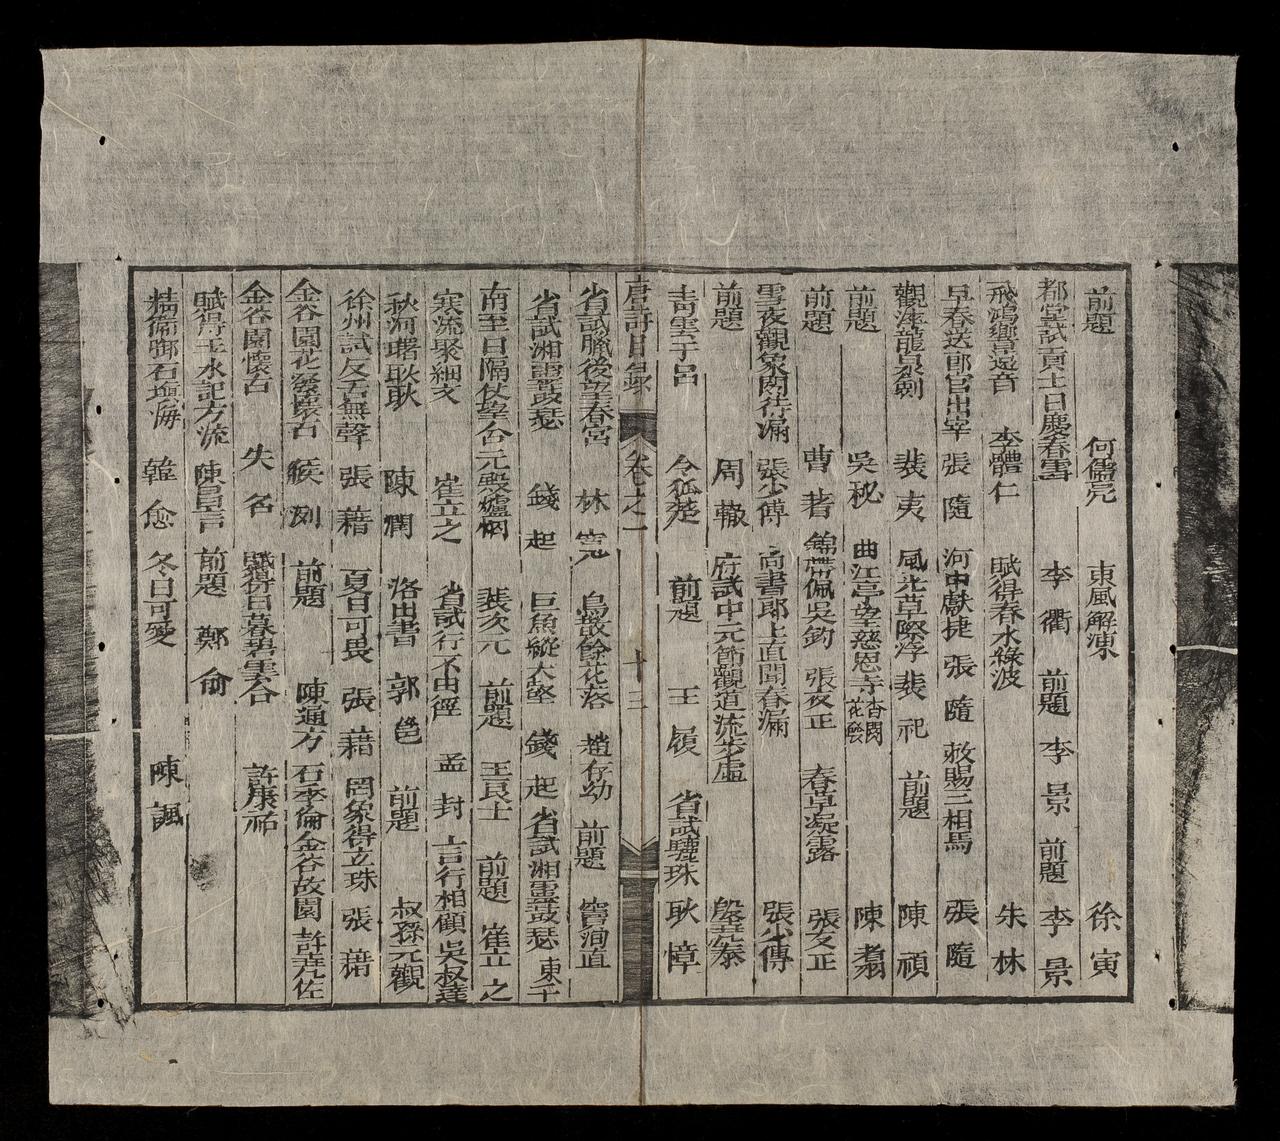 前題 何儒亮 東風解凍 徐寅
都堂試貢士日慶春雪 李衢 前題 李景 前題 李景
飛鴻響遠音 李體仁 賦得春水綠波 朱林
早春送郎官出宰 張隨 河中獻捷 張隨 敕賜三相馬 張隨
觀淬龍泉劍 裴夷 風光草際浮 裴祀 前題 陳頑
前題 吳秘 曲江亭望慈恩寺杏園花發 陳翥
前題 曹著 錦帶佩吳鈎 張友正 春草凝露 張友正
雪夜觀象闕待漏 張少傅 尚書郎上直聞春漏 張少傅
前題 周轍 府試中元節觀道流步虛 殷堯藩
青雲干呂 令狐楚 前題 王履 省試驪珠 耿湋
唐詩目錄 卷之一 十三
省試臘後望春宮 林寬 鳥散餘花落 趙存幼 前題 竇洵直
省試湘靈鼓瑟 錢起 巨魚縱大壑 錢起 省試湘靈鼓瑟 東干
南至日隔仗望含元殿爐烟 裴次元 前題 王良士 前題 崔立之
寒流聚細文 崔立之 省試行不由徑 孟封 言行相顧 吳叔達
秋河曙耿耿 陳潤 洛出書 郭邕 前題 叔孫元觀
徐州試反舌無聲 張籍 夏日可畏 張籍 罔象得立珠 張籍
金谷園花發懷古 侯冽 前題 陳通方 石季倫金谷故園 許堯佐
金谷園懷古 失名 賦得日暮碧雲合 許康祐
賦得玉水記方流 陳昌言 前題 鄭俞
精衛啣石塡海 韓愈 冬日可愛 陳諷